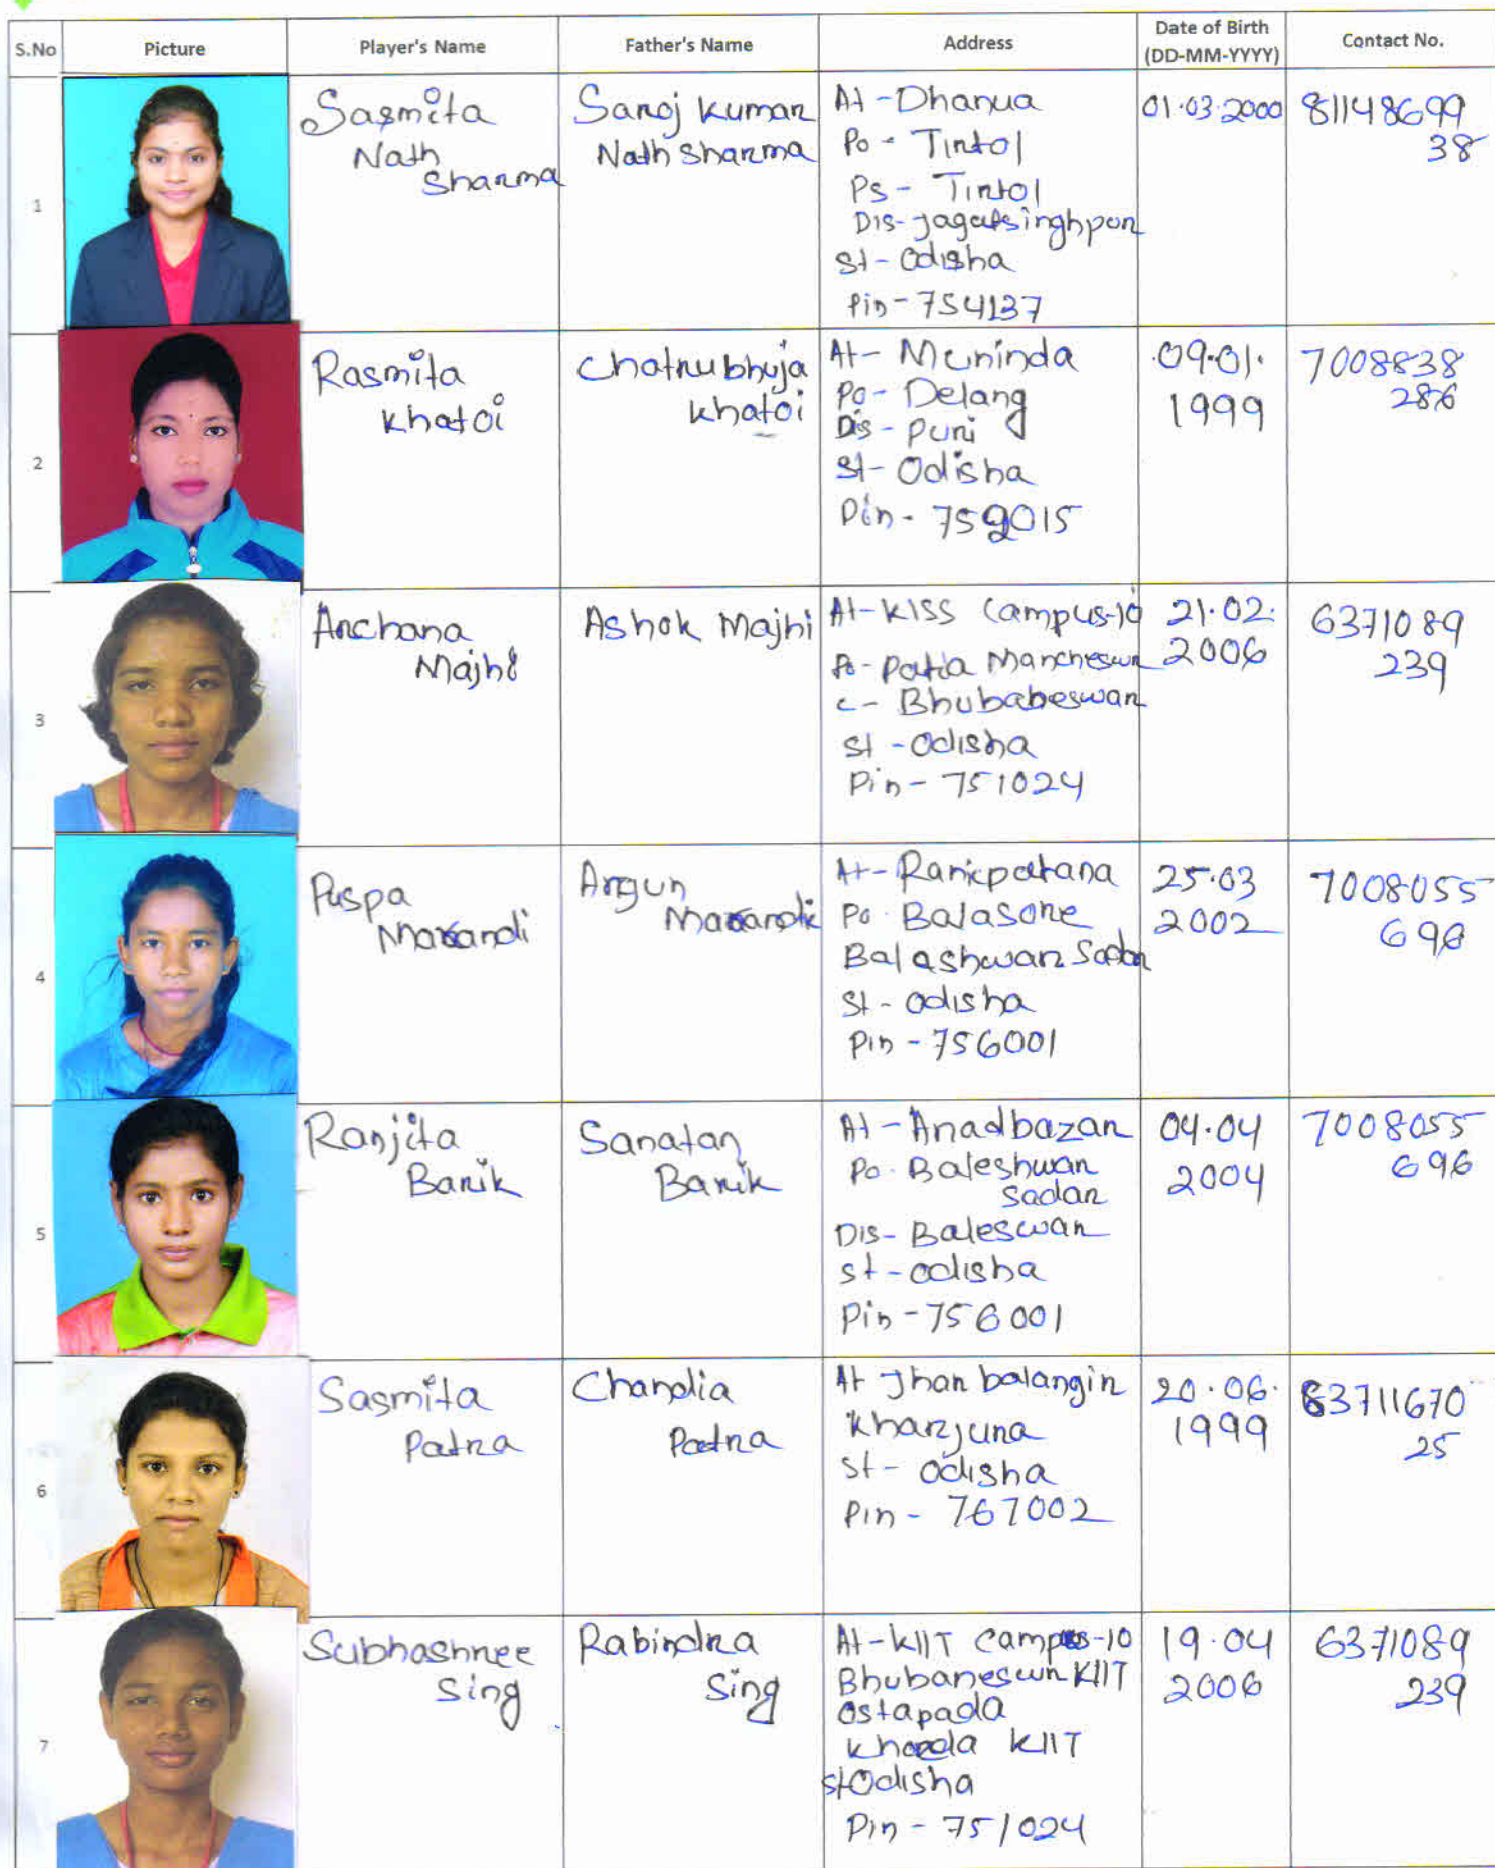 S.No Picture Player's Name Father's Name Address Date of Birth (DD-MM-YYYY) Contact No.
1
Sasmita
Nath
Sharma
Saroj Kumar
Nath Sharma
At - Dhanua
Po - Tirtol
Ps - Tirtol
Dis - Jagatsinghpur
St - Odisha
Pin - 754137
01.03.2000
81148699
38
2
Rasmita
Khatoi
Chatrubhuja
Khatoi
At - Muninda
Po - Delang
Dis - Puri
St - Odisha
Pin - 752015
09.01.
1999
7008838
286
3
Archana
Majhi
Ashok Majhi
At - KISS Campus-10
Po - Patia Mancheswr
c - Bhubabeswar
St - Odisha
Pin - 751024
21.02.
2006
6371089
239
4
Puspa
Marandi
Argun
Marandi
At - Ranipatana
Po Balasore
Balashwar Sadar
St - Odisha
Pin - 756001
25.03
2002
7008055
696
5
Ranjita
Barik
Sanatan
Barik
At - Anadbazar
Po. Baleshwar
Sadar
Dis - Baleswar
St - Odisha
Pin - 756001
04.04
2004
7008055
696
6
Sasmita
Patra
Chandia
Patra
At Jhar balangir
Kharjura
St - Odisha
Pin - 767002
20.06.
1999
63711670
25
7
Subhashree
Sing
Rabindra
Sing
At - KIIT Campus-10
Bhubaneswr KIIT
Ostapada
KIIT
St Odisha
Pin - 751024
19.04
2006
6371089
239